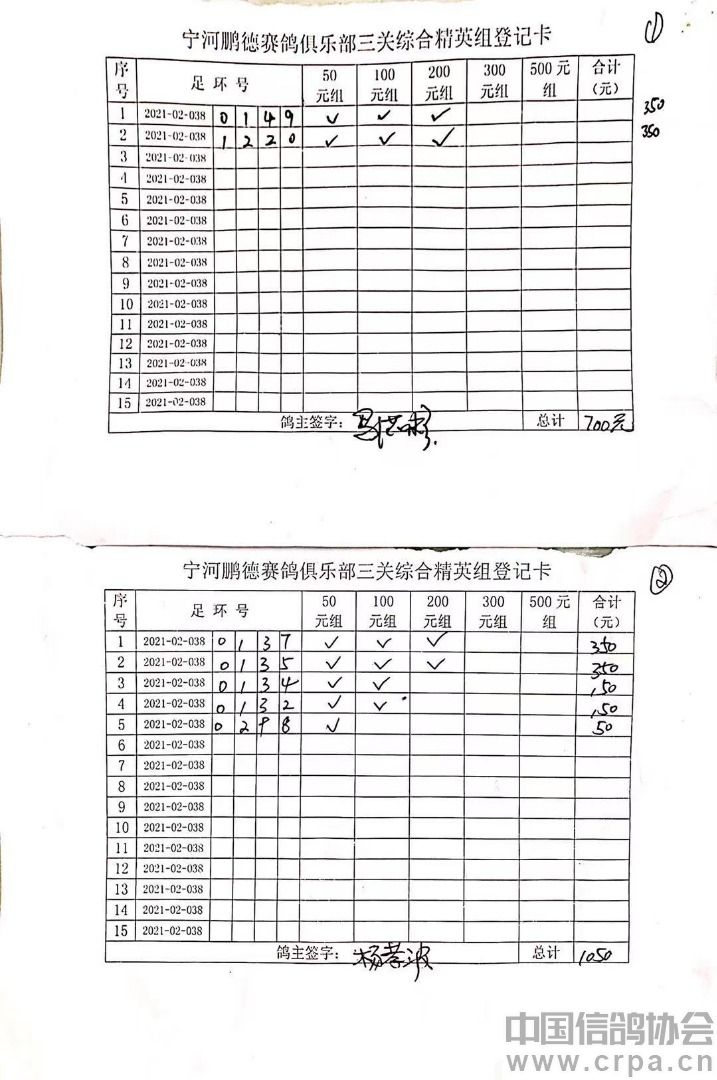 宁河鹏德赛鸽俱乐部三关综合精英组登记卡 ①
序号 足环号 50元组 100元组 200元组 300元组 500元组 合计(元)
1 2021-02-038 0149 ✓ ✓ ✓ 350
2 2021-02-038 1220 ✓ ✓ ✓ 350
3 2021-02-038
4 2021-02-038
5 2021-02-038
6 2021-02-038
7 2021-02-038
8 2021-02-038
9 2021-02-038
10 2021-02-038
11 2021-02-038
12 2021-02-038
13 2021-02-038
14 2021-02-038
15 2021-02-038
鸽主签字: 总计 700元
宁河鹏德赛鸽俱乐部三关综合精英组登记卡 ②
序号 足环号 50元组 100元组 200元组 300元组 500元组 合计(元)
1 2021-02-038 0137 ✓ ✓ ✓ 350
2 2021-02-038 0135 ✓ ✓ ✓ 350
3 2021-02-038 0134 ✓ ✓ 150
4 2021-02-038 0132 ✓ ✓ 150
5 2021-02-038 0298 ✓ 50
6 2021-02-038
7 2021-02-038
8 2021-02-038
9 2021-02-038
10 2021-02-038
11 2021-02-038
12 2021-02-038
13 2021-02-038
14 2021-02-038
15 2021-02-038
鸽主签字: 杨孝波 总计 1050
中国信鸽协会
www.crpa.cn